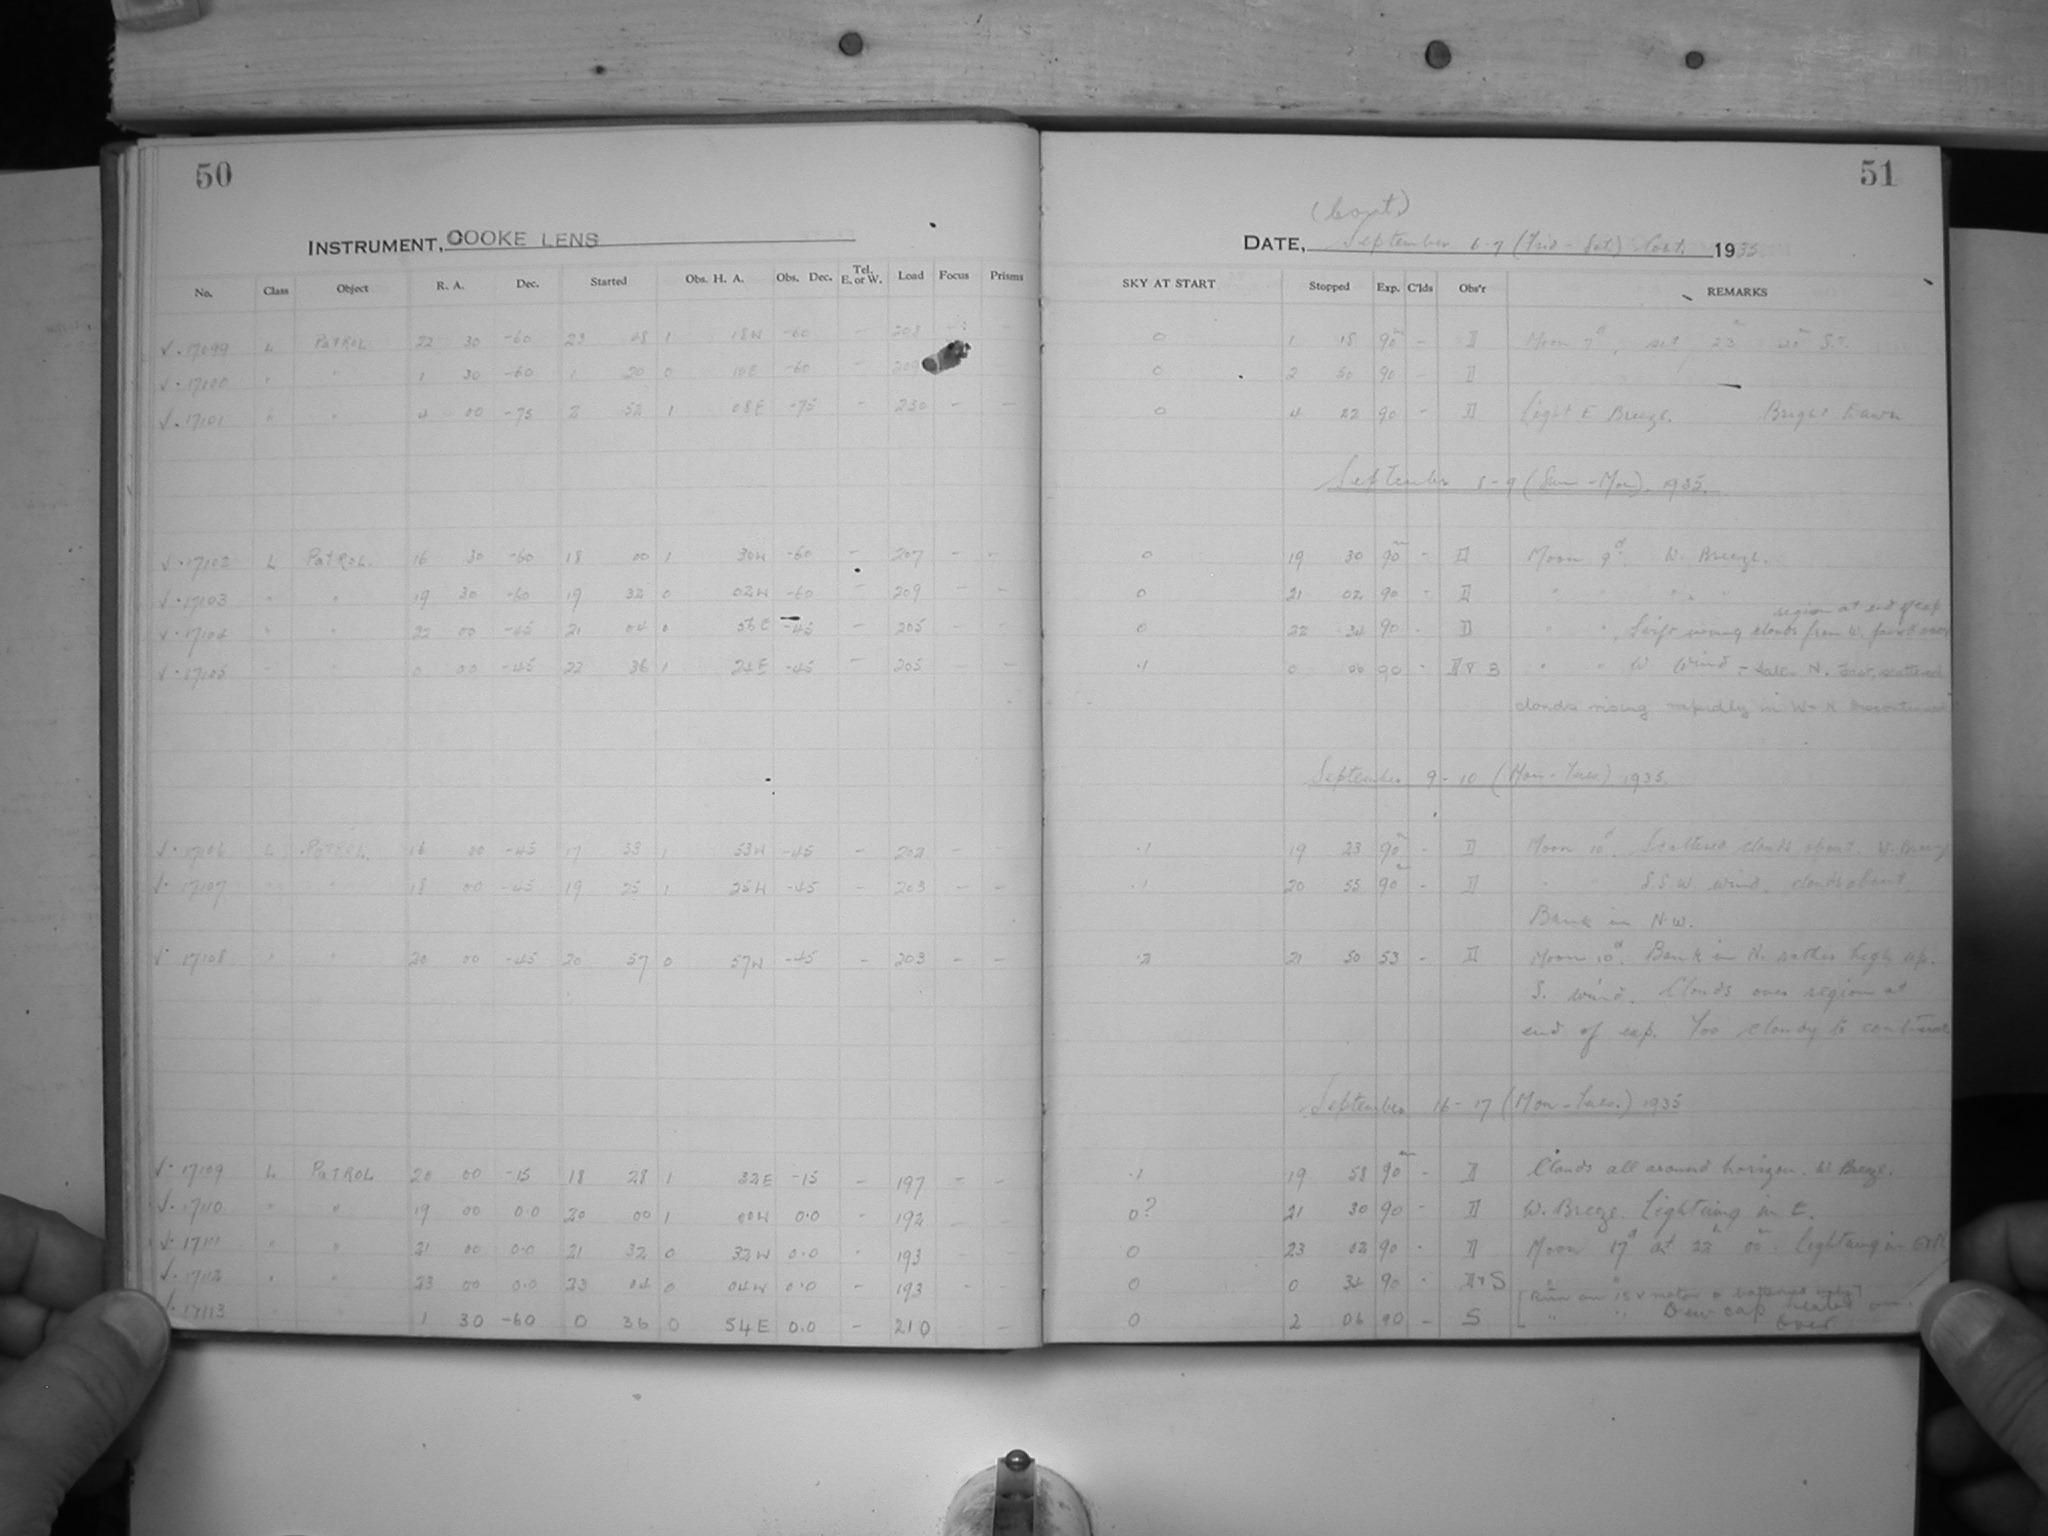 50
INSTRUMENT, COOKE LENS
No. Class Object R. A. Dec. Started Obs. H. A. Obs. Dec. Tel. E. or W. Load Focus Prisms
√·17099 L PATROL 22 30 -60 23 48 1 18W -60 - 208 -
√·17100 " " 1 30 -60 1 20 0 10E -60 -
√·17101 " " 4 00 -75 2 52 1 08E -75 - 230 - -
√·17102 L PATROL 16 30 -60 18 00 1 30W -60 - 207 - -
√·17103 " " 19 30 -60 19 32 0 02W -60 - 209 - -
√·17104 " " 22 00 -45 21 04 0 56E -45 - 205 - -
√·17105 " " 0 00 -45 22 36 1 24E -45 - 205 - -
√·17106 L PATROL 16 00 -45 17 53 1 53W -45 - 202 - -
√·17107 " " 18 00 -45 19 25 1 25W -45 - 203 - -
√·17108 " " 20 00 -45 20 57 0 57W -45 - 203 - -
√·17109 L PATROL 20 00 -15 18 28 1 32E -15 - 197 - -
√·17110 " " 19 00 0.0 20 00 1 00W 0.0 - 192 - -
√·17111 " " 21 00 0.0 21 32 0 32W 0.0 - 193 - -
√·17112 " " 23 00 0.0 23 04 0 04W 0.0 - 193 - -
√·17113 1 30 -60 0 36 0 54E 0.0 - 210 -
51
(Cont)
DATE, September 6-7 (Frid - Sat) Cont. 1935
SKY AT START Stopped Exp. C'lds Obs'r REMARKS
0 1 18 90m - D Moon 9d, set 23h 20m S.T.
0 2 50 90 - D
0 4 22 90 - D Light E Breeze. Bright Dawn
September 8-9 (Sun - Mon). 1935.
0 19 30 90m - D Moon 9d. W. Breeze.
0 21 02 90 - D " " " "
region at end of exp
0 22 34 90 - D " ", Swift moving clouds from W.
.1 0 00 90 - D & B " " W Wind - scattered
clouds rising rapidly in W & N Discontinued
September 9-10 (Mon - Tues) 1935.
.1 19 23 90m - D Moon 10d. Scattered clouds about. W. Breeze
.1 20 55 90m - D " " S.S.W. wind. clouds about
Bank in N.W.
.2 21 50 53 - D Moon 10d. Bank in N. rather high up.
S. wind. Clouds over region at
end of exp. Too cloudy to continue
September 16-17 (Mon - Tues.) 1935
.1 19 58 90m - D Clouds all around horizon. W. Breeze.
0? 21 30 90 - D W. Breeze. Lightning in E.
0 23 02 90 - D Moon 17d at 22h 00m. Lightning in E
0 0 34 90 - D & S [Run on 15 v motor & batteries only]
0 2 06 90 - S [ " " Dew cap heater on.
over